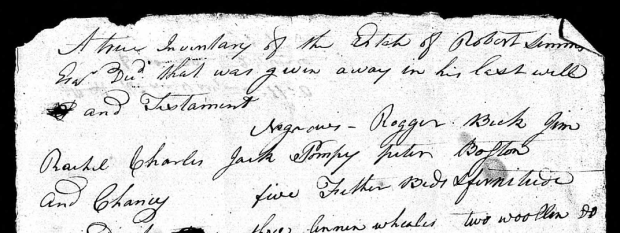 A true Inventary of the Estate of Robert Simms
Esqr Decd that was given away in his last will
and Testament
Negroes - Rogger Beck Jim
Rachel Charles Jack Pompy Peter Boston
and Chancy five Fether Beds &
three linnen wheales two woollin do